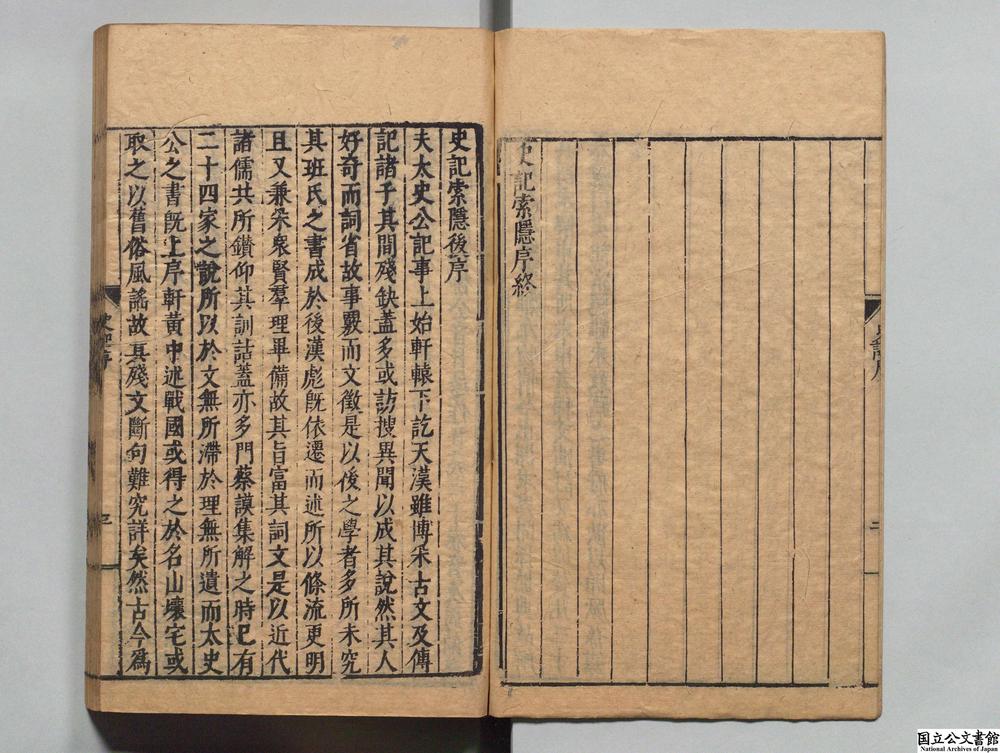 史記索隱序終
史記索隱後序
夫太史公記事上始軒轅下訖天漢雖博采古文及傳
記諸子其間殘缺蓋多或訪搜異聞以成其說然其人
好奇而詞省故事覈而文徵是以後之學者多所未究
其班氏之書成於後漢彪既依遷而述所以條流更明
且又兼采衆賢羣理畢備故其旨富其詞文是以近代
諸儒共所鑚仰其訓詁蓋亦多門蔡謨集解之時已有
二十四家之說所以於文無所滯於理無所遺而太史
公之書既上序軒黃中述戰國或得之於名山壞宅或
取之以舊俗風謠故其殘文斷句難究詳矣然古今爲
史記序
二
史記序
三
国立公文書館
National Archives of Japan